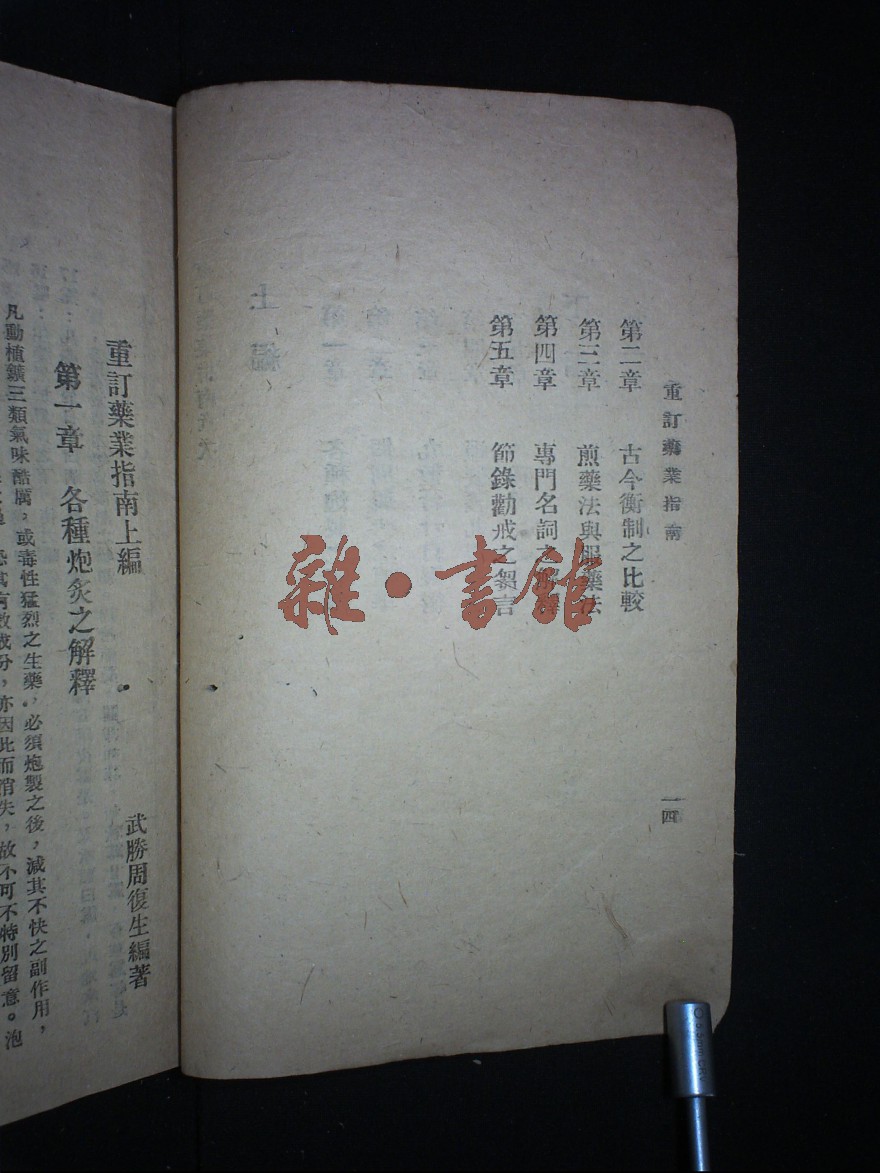 重訂藥業指南
一四
第二章 古今衡制之比較
第三章 煎藥法與服藥法
第四章 專門名詞之解釋
第五章 節錄勸戒之芻言
雜•書館
重訂藥業指南上編
武勝周復生編著
第一章 各種炮炙之解釋
凡動植鑛三類氣味酷厲，或毒性猛烈之生藥，必須炮製之後，減其不快之副作用，
恐其有效成分，亦因此而消失，故不可不特別留意。泡